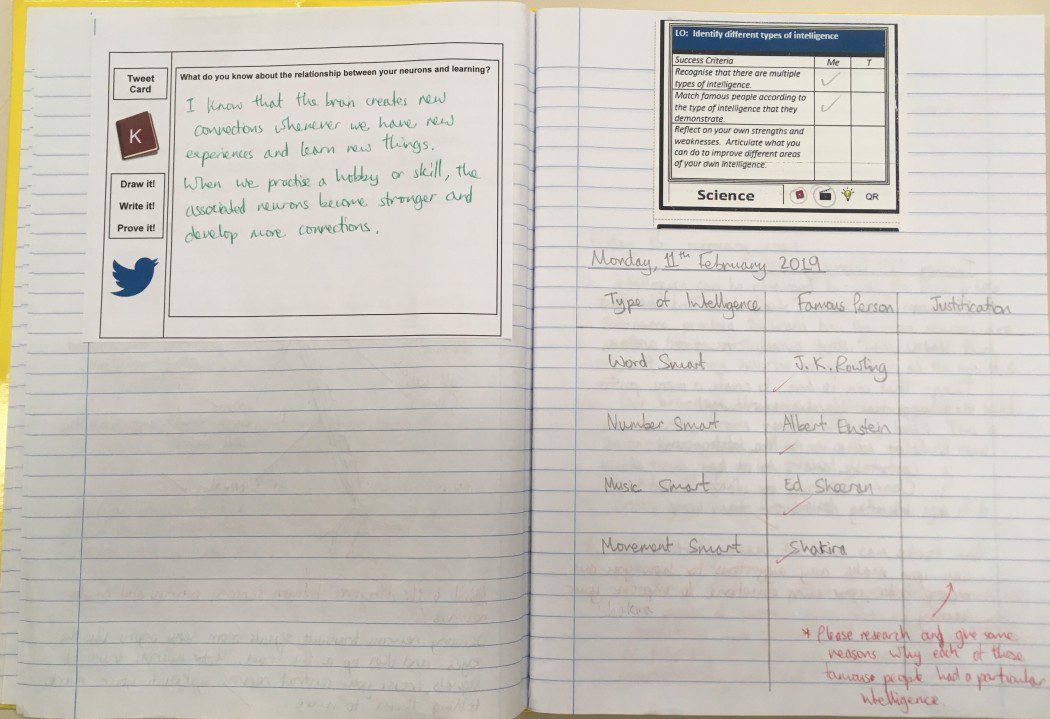 Tweet
Card
K
Draw it!
Write it!
Prove it!
What do you know about the relationship between your neurons and learning?
I know that the brain creates new
connections whenever we have new
experiences and learn new things.
When we practise a hobby or skill, the
associated neurons become stronger and
develop more connections.
LO: Identify different types of intelligence
Success Criteria Me T
Recognise that there are multiple
types of intelligence.
Match famous people according to
the type of intelligence that they
demonstrate.
Reflect on your own strengths and
weaknesses. Articulate what you
can do to improve different areas
of your own intelligence.
Science QR
Monday, 11th February 2019
Type of Intelligence Famous Person Justification
Word Smart J.K. Rowling
Number Smart Albert Enstein
Music Smart Ed Sheeran
Movement Smart Shakira
* Please research and give some
reasons why each of these
famouse people had a particular
intelligence.